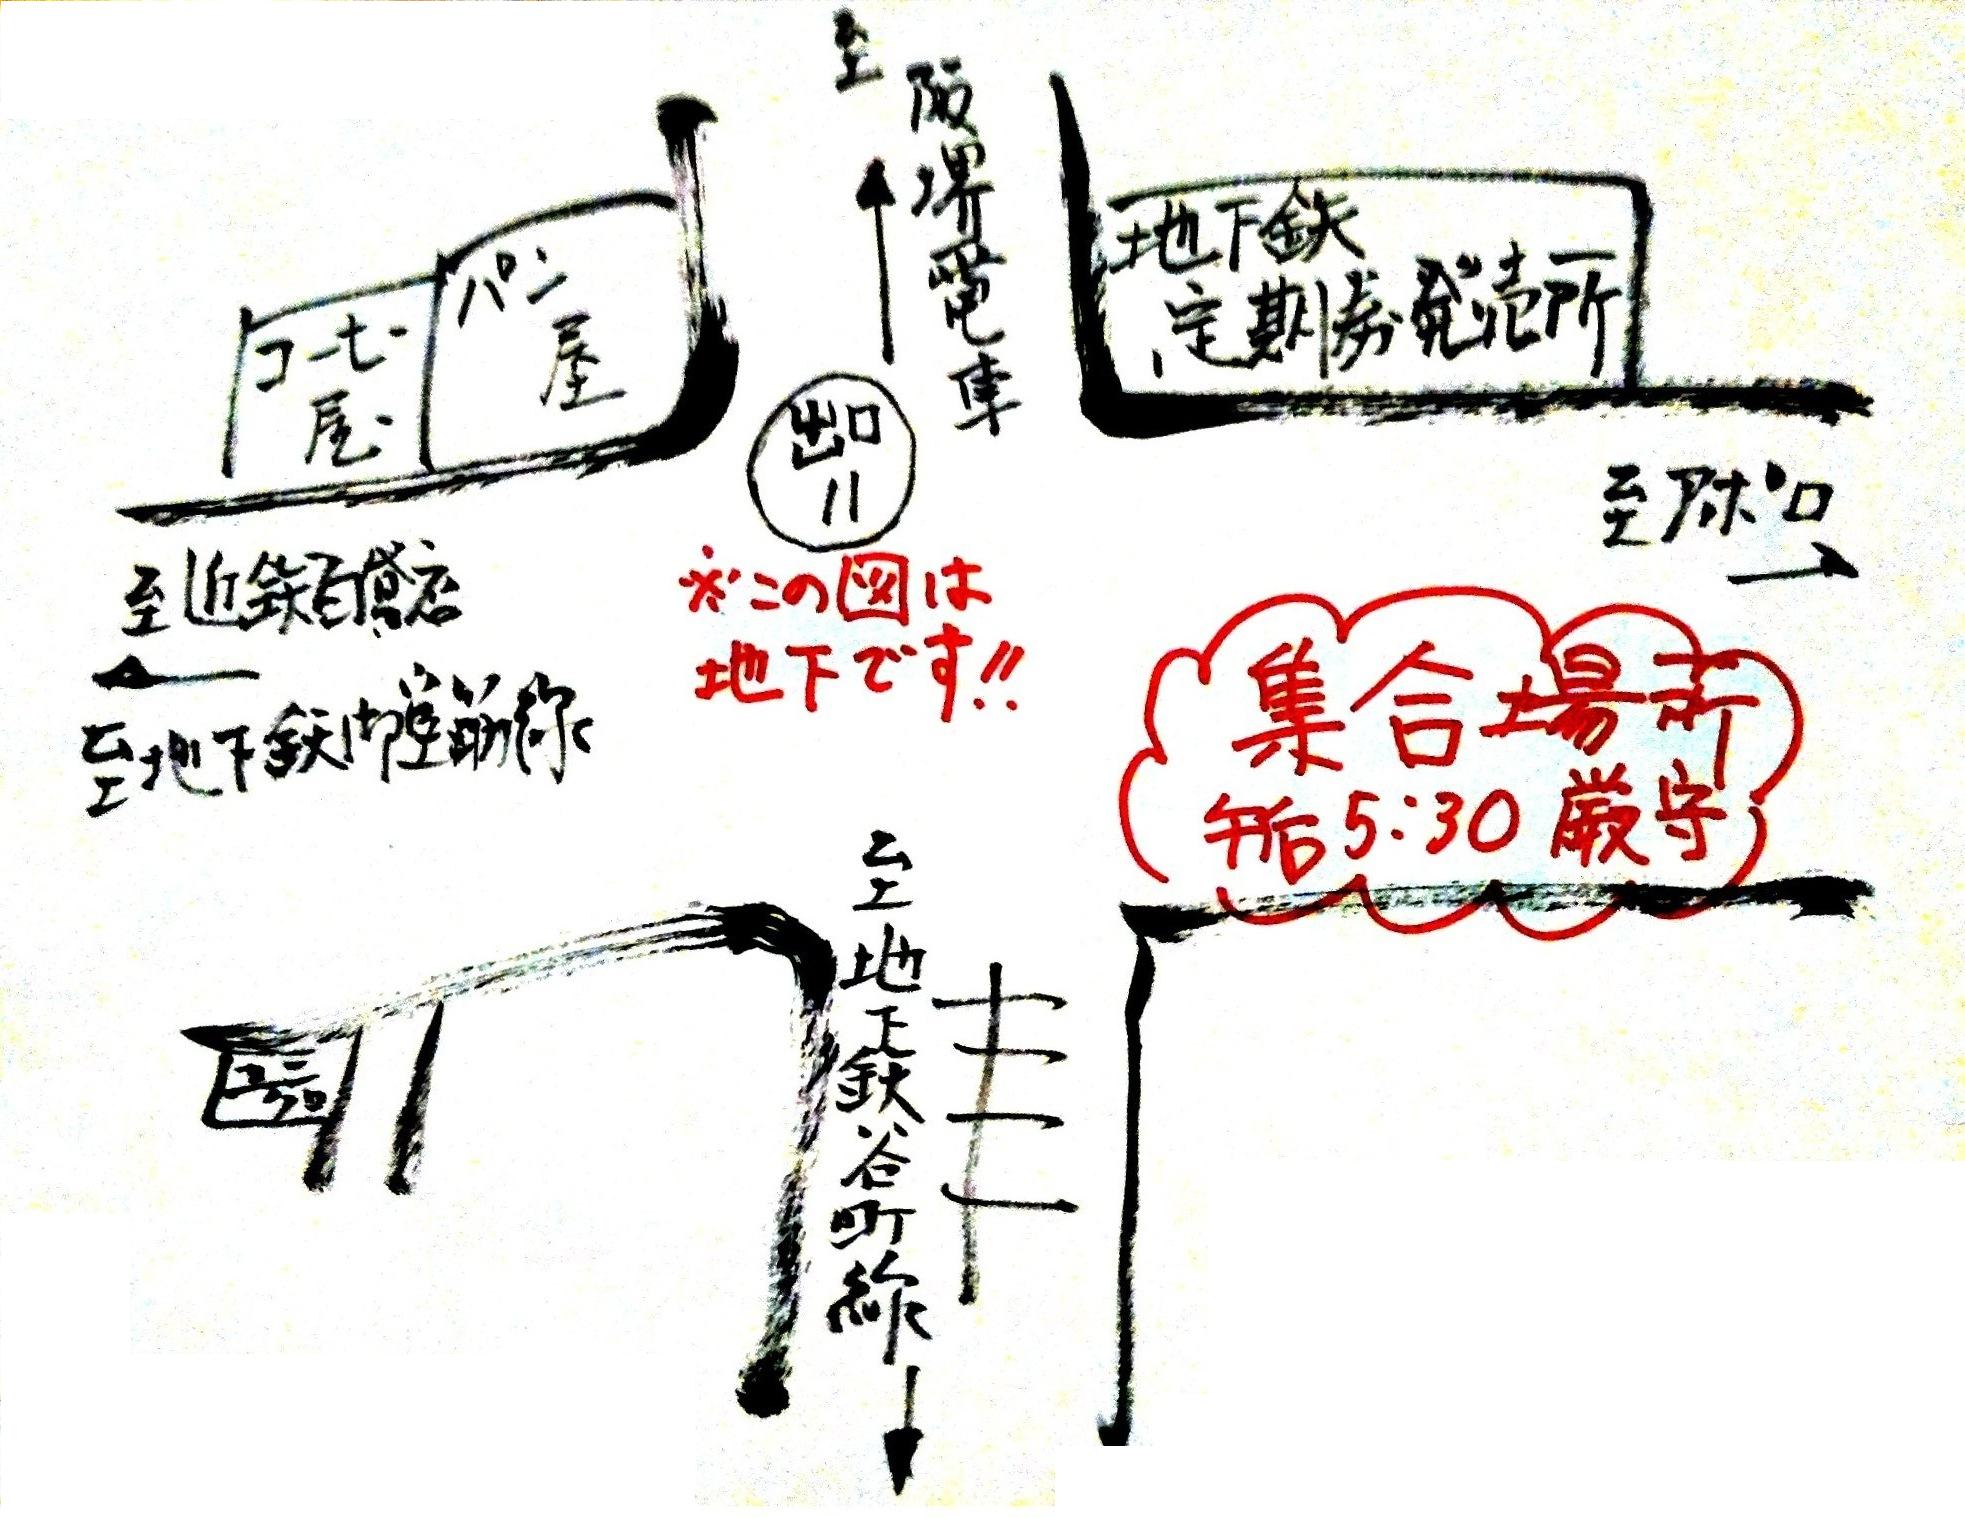 至阪堺電車
地下鉄
定期券発売所
パン
屋
コーヒー
屋
出口
11
至アポロ
至近鉄百貨店
至地下鉄御堂筋線
※この図は
地下です!!
集合場所
午后5:30厳守
至地下鉄谷町線